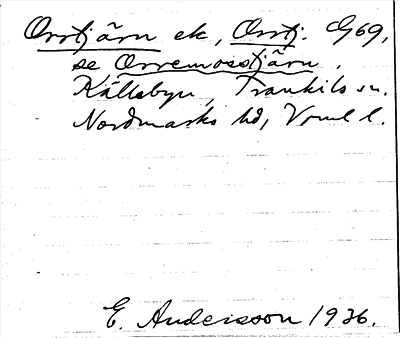 Orrtjärn ek, Orrtj. G69,
se Orremosstjärn.
Källsbyn, Trankils sn.
Nordmarks hd, Vrml l.
E. Andersson 1936.